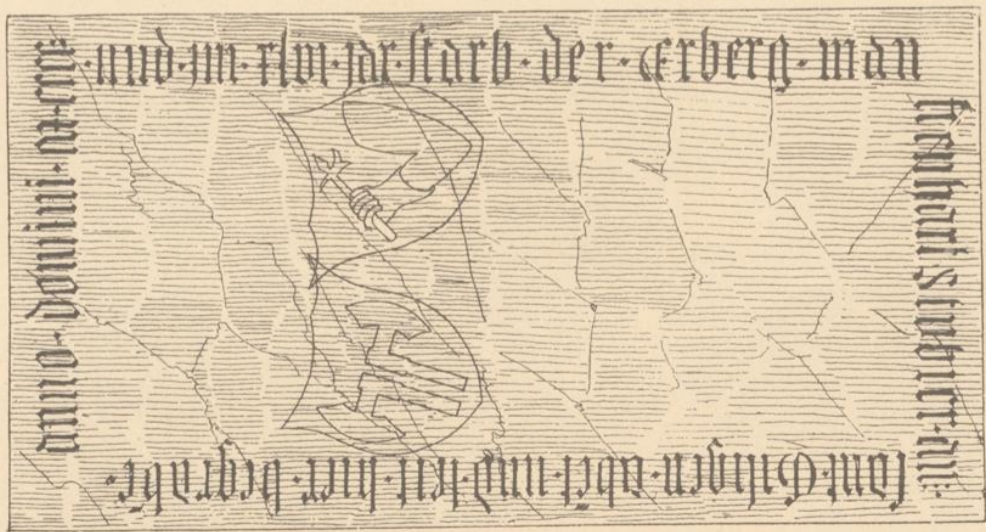 anno · domini · m · cccc
· und · jm · xlvi · jar · starb · der · Erberg · man
lienhart
sant Gilgen · abet · und · leit · hier · begrabe ·